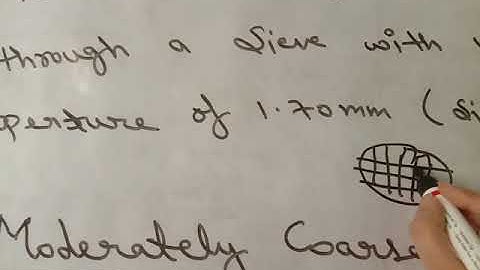 through a Sieve with
perture of 1.70mm (Si
Moderately Coarse